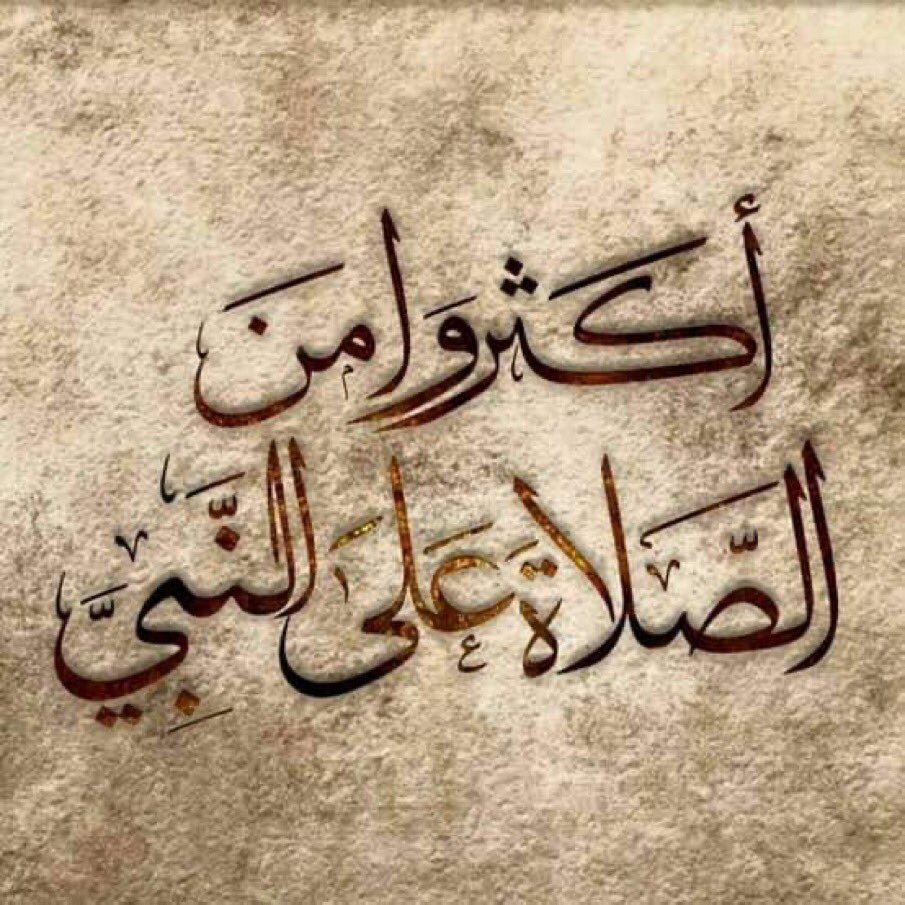 أكَثروَا منَ
الصَّلاَةَ عَلىَ النَّبِيَّ